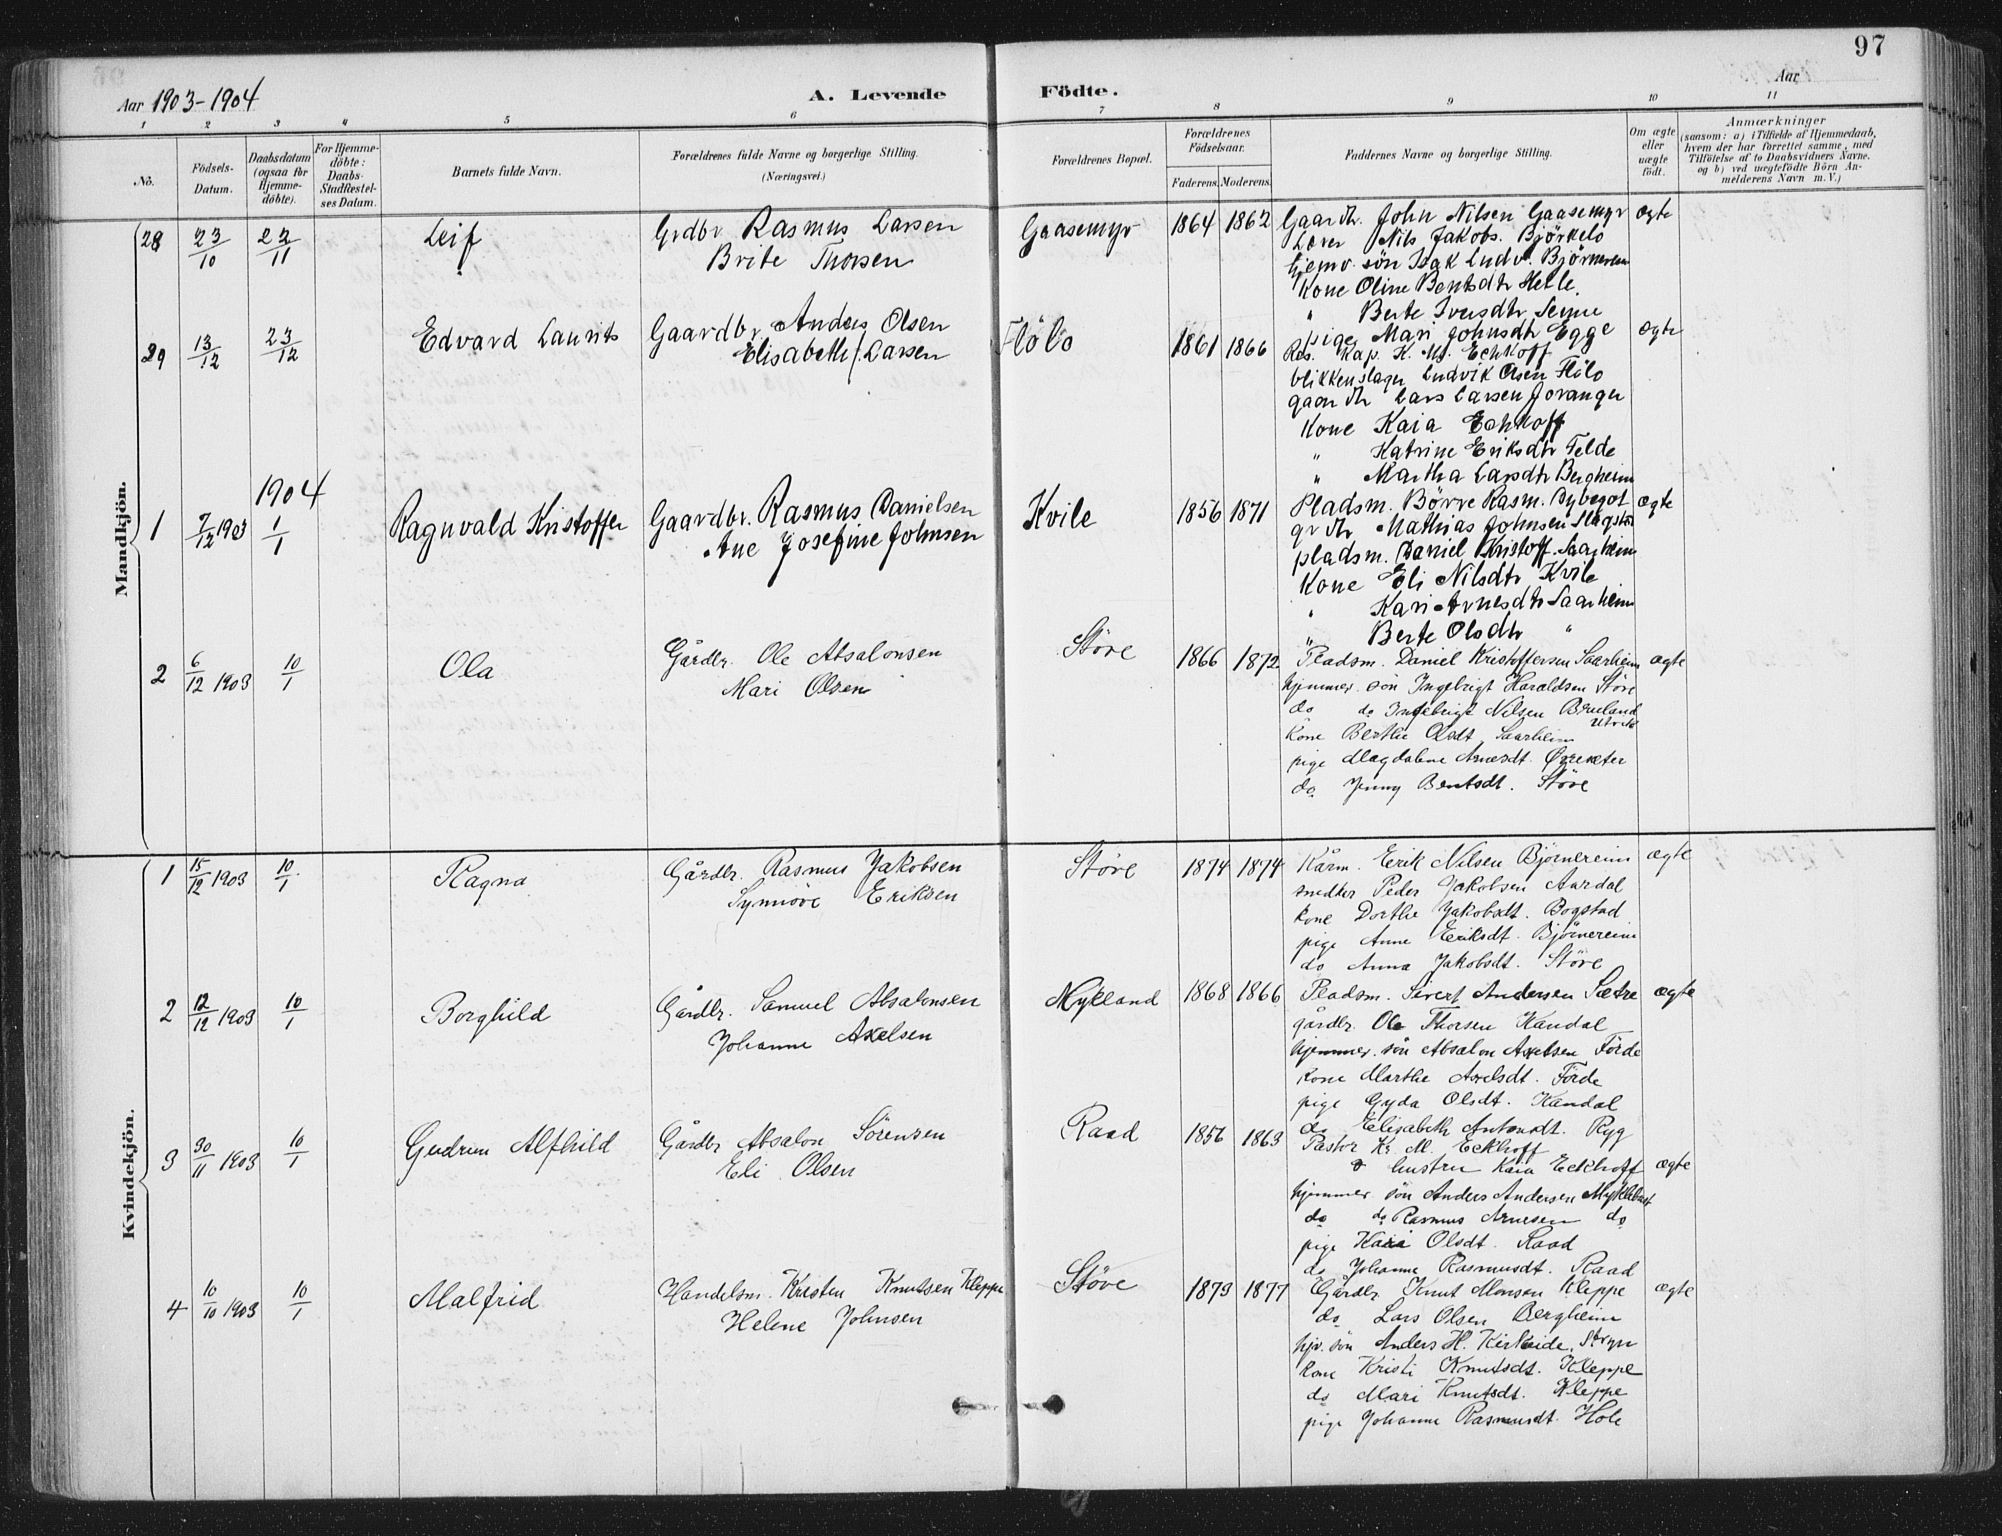 97
Aar 1903-1904
A. Levende Födte.
Aar
1 2 3 4 5 6 7 8 9 10 11
No.
Födsels-Datum.
Daabsdatum (ogsaa for Hjemme-döbte).
For Hjemme-döbte: Daabs-Stadfestel-ses Datum.
Barnets fulde Navn.
Forældrenes fulde Navne og borgerlige Stilling.
(Næringsvei.)
Forældrenes Bopæl.
Forældrenes Födselsaar.
Faderens. Moderens.
Faddernes Navne og borgerlige Stilling.
Om ægte eller uægte födt.
Anmærkninger
(saasom: a) i Tilfælde af Hjemmedaab,
hvem der har forrettet samme, med
Tilföielse af to Daabsvidners Navne.
og b) ved uægtefödte Börn An-
melderens Navn m. V.)
Mandkjön.
28 23/10 22/11 Leif Grdbr Rasmus Larsen Gaasemyr 1864 1862 Gaardbr. John Nilsen Gaasemyr ægte
Brite Thorsen
Lærer Nils Jakobs. Björkelo
hjemv. sön Isak Ludv. Björnereim
Kone Oline Bentsdtr Hetle.
" Berte Iversdtr Seime
pige Mari Johnsdtr Egge
29 13/12 23/12 Edvard Laurits Gaardbr Anders Olsen Flölo 1861 1866 ægte
Elisabeth Larsen
Res. Kap. K. M. Eckhoff
blikkenslager Ludvik Olsen Flölo
gaardbr Lars Larsen Joranger
Kone Kaia Eckhoff
" Katrine Eriksdtr Felde
" Martha Larsdtr Bergheim
1904
1 7/12 1903 1/1 Ragnvald Kristoffer Gaardbr. Rasmus Danielsen Kvile 1856 1871 Pladsm. Börre Rasm. ægte
Ane Josefine Johnsen
grdbr Mathias Johnsen
pladsm. Daniel Kristoff. Saarheim
Kone Eli Nilsdtr Kvile
" Kari Arnesdtr Saarheim
" Berte Olsdtr "
2 6/12 1903 10/1 Ola Gårdbr. Ole Absalonsen Störe 1866 1872 Pladsm. Daniel Kristoffersen Saarheim ægte
Mari Olsen
hjemmev. sön Ingebrigt Haraldsen Störe
do do Ingebrigt Nilsen Brueland Utvik
kone Berthe Olsdt. Saarheim
pige Magdalene Arnesdt.
do Jenny Bentsdt. Störe
Kvindekjön.
1 15/12 1903 10/1 Ragna Gårdbr. Rasmus Jakobsen Störe 1874 1874 Kårm. Erik Nilsen Björnereim ægte
Synnöve Eriksen
Peder Jakobsen Aardal
kone Dorthe Jakobsdt. Bogstad
pige Anne Eriksdt. Björnereim
do Anna Jakobsdt. Störe
2 12/12 1903 10/1 Borghild Gårdbr. Samuel Absalonsen Mykland 1868 1866 Pladsm. Sivert Andersen Sætre ægte
Johanne Axelsen
gårdbr. Ole Thorsen Kandal
hjemmev. sön Absalon Axelsen Förde
kone Marthe Axelsdt. Förde
pige Gyda Olsdt. Kandal
do Elisabeth Antonsdt. Ryg
3 30/11 1903 10/1 Gudrun Alfhild Gårdbr Absalon Sörensen Raad 1856 1863 Pastor Kr. M. Eckhoff
Eli Olsen
& hustru Kaia Eckhoff ægte
hjemmev. sön Anders Andersen Myklebust
do do Rasmus Arnesen do
pige Kaia Olsdt. Raad
do Johanne Rasmusdt. Raad
4 10/10 1903 10/1 Malfrid Handelsm. Kristen Knutsen Kleppe Störe 1879 1877 Gårdbr Knut Monsen Kleppe ægte
Helene Johnsen
do Lars Olsen Bergheim
hjv. sön Anders H. Kirkeide, Stryn
kone Kristi Knutsdt. Kleppe
do Mari Knutsdt. Kleppe
pige Johanne Rasmusdt. Hole